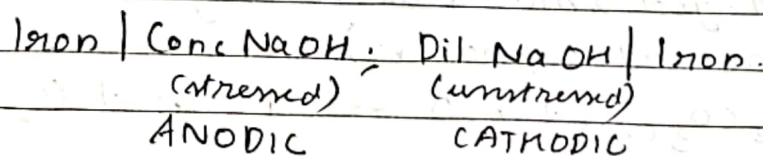 Iron | Conc NaOH : Dil NaOH | Iron.
(stressed) (unstressed)
ANODIC CATHODIC